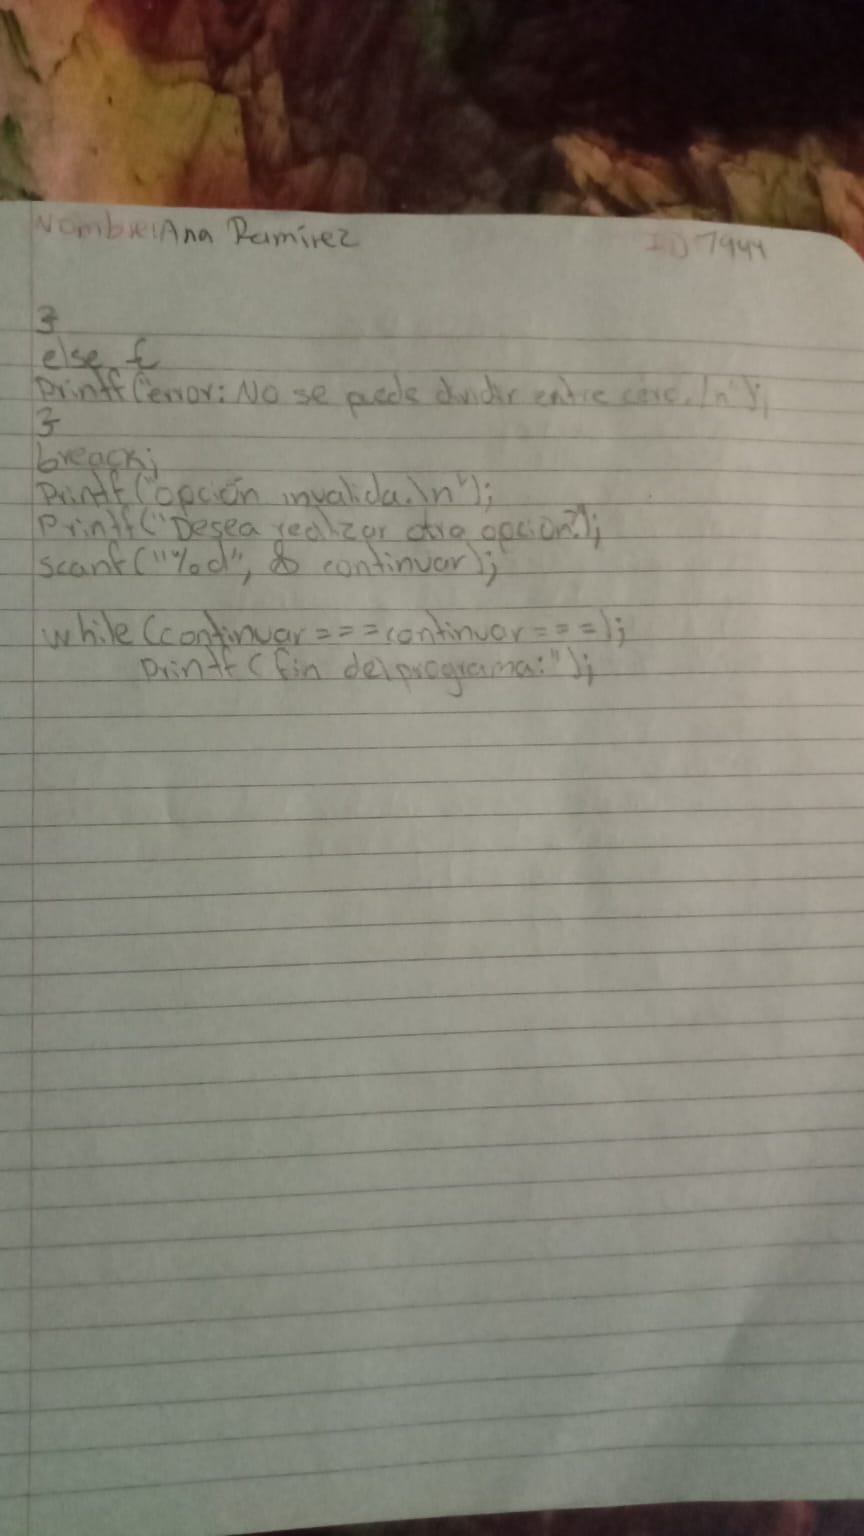 Nombre: Ana Ramirez ID 7944
}
else {
Printf ("error: No se puede dividir entre cero. \n");
}
breack;
Printf ("opción invalida.\n");
Printf ("Desea realizar otra opcion?");
scanf ("%d", & continuar);
while (continuar = = = continuar = = =);
Printf ( fin del programa:");